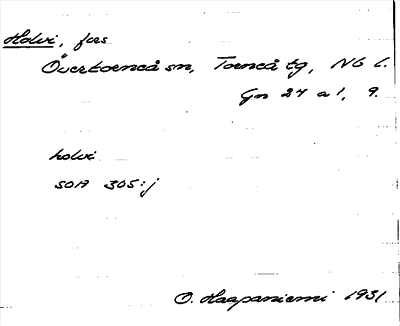 Holvi, fors
Övertorneå sn, Torneå tg, NB l.
Gn 24 a 1, 9.
holvi
SOA 305:j
O. Haapaniemi 1931